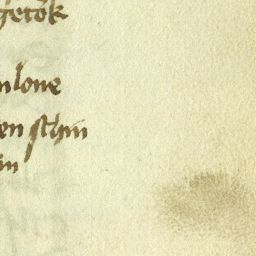 getok
nlone
en schin
in